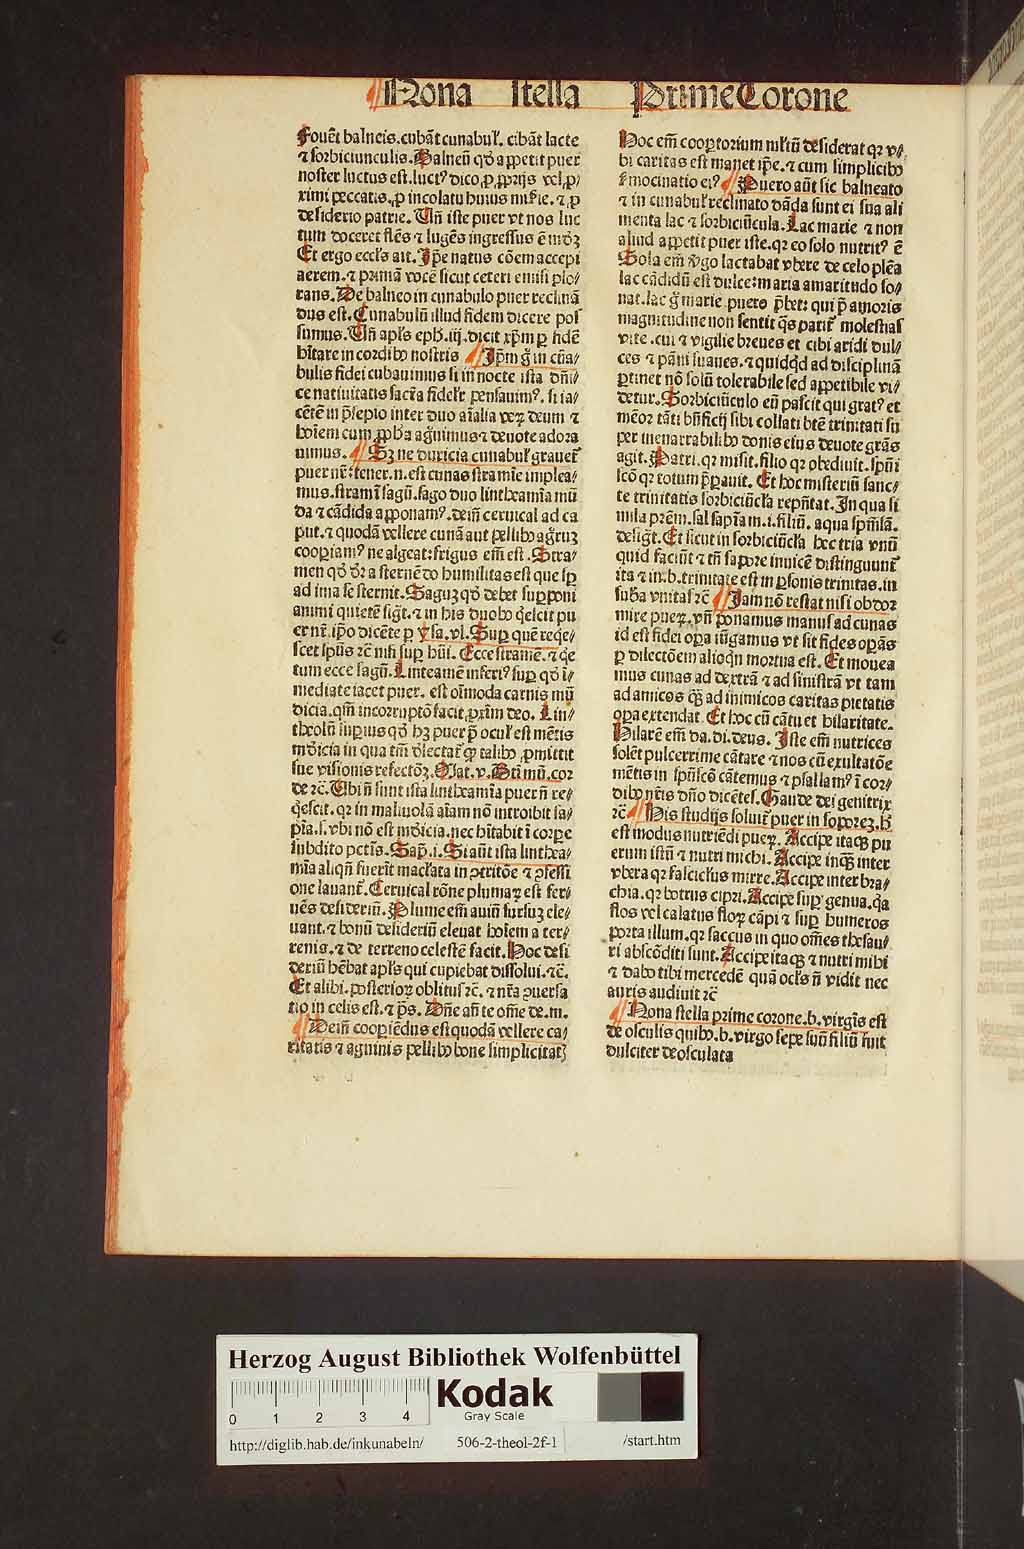 Nona stella Prime Corone
Fouēt balneis. cubāt cunabul'. cibāt lacte
⁊ sorbiciunculis. Balneū qđ appetit puer
noster luctus est. luctꝰ dico, ꝓ, pprijs vel, ꝓ/
ximi peccatis, ꝓ incolatu huius mi. ⁊, ꝓ
desiderio patrie. Uñ iste puer vt nos luc
tum doceret flēs ⁊ lugēs ingressus ē mūdꝫ
Et ergo eccl's ait. Ip̄e natus cōem accepi
aerem. ⁊ primā vocē sicut ceteri emisi plo/
rans. De balneo in cunabulo puer reclinā
dus est. Cunabulū illud fidem dicere pos
sumus. Uñ apl's eph. iij. dicit xp̄m ꝑ fidē
hītare in cordibꝰ nostris Ip̄m g̊ in cūa/
bulis fidei cubauimus si in nocte ista dñi/
ce natiuitatis sacra fidel'r pensauimꝰ. si ia/
cētē in p̄sepio inter duo aīalia veꝝ deum ⁊
hoīem cum, ppħa agnouimus ⁊ deuote adora
uimus. Sꝫ ne duricia cunabul' grauet
puer nr̄: tener. n. est cunas stramīe implea/
mus. stramī sagū. sago duo lintheamīa mū
da ⁊ cādida apponamꝰ. deiñ ceruical ad ca
put. ⁊ quodā vellere cunā aut pellibꝰ agnꝫ
cooꝑiamꝰ ne algeat: frigus em̄ est. Stra/
men qđ d'ra sternēdo humilitas est que sꝑ
ad ima se sternit. Saguꝫ qđ debet suꝑponi
animi quietē sigt. ⁊ in his duobꝰ q̇escit pu
er nr̄. ipo dicēte ꝑ ysa. vl. Suꝑ quē reqe/
scet spūs ꝛc̄ nisi suꝑ hūi. Ecce stramē. ⁊ q̇e
tum ecce sagū. Linteamē inferiꝰ suꝑ qđ ī/
mediate iacet puer. est oīmoda carnis mū
dicia. qm̄ incorruptō facit, ꝓxim deo. Lin/
theolū suꝑius qđ hꝫ puer p̄ ocul' est mētis
mūdicia in qua tm̄ delectat ꝙ talibꝰ, ꝓmittit
sue visionis refectōꝫ. Mat. v. Btī mū. cor
de ꝛc̄. Ubi ñ sunt ista lintheamīa puer ñ re/
q̇escit. qꝛ in maliuolā aīam nō introibit sa/
pīa. s. vbi nō est mūdicia. nec hītabit ī corꝑe
subdito pctīs. Sap. i. Si aūt ista linthea/
mīa aliqñ fuerīt maclata in ꝯtritōe ⁊ ꝯfessi
one lauanť. Ceruical rōne plumaꝝ est fer/
uēs desideriū. Plume em̄ auiū sursuꝫ ele/
uant. ⁊ bonū desideriū eleuat hoīem a ter/
renis. ⁊ de terreno celestē facit. Hoc desi
deriū hēbat apl's qui cupiebat dissolui. ⁊c̄.
Et alibi. posterioꝝ oblitus ꝛc̄. ⁊ nr̄a ꝯuersa
tio in celis est. ⁊ p̄s. Dñe añ te om̄e de. m.
Deiñ cooꝑiēdus est quodā vellere ca/
ritatis ⁊ agninis pellibꝰ bone simplicitatꝫ
Hoc em̄ cooꝑtorium mltū desiderat qꝛ v/
bi caritas est manet ip̄e. ⁊ cum simplicibꝰ
sermocinatio eiꝰ Puero aūt sic balneato
⁊ in cunabul' reclinato dāda sunt ei sua ali
menta lac ⁊ sorbiciūcula. Lac marie ⁊ non
aliud appetit puer iste. qꝛ eo solo nutritꝰ ē
Sola em̄ v̄go lactabat vbere de celo plēa
lac cādidū est dulce: maria amaritudo so/
nat. lac g̊ marie puero p̄bet: qui p̄ amoris
magnitudine non sentit q̄s patit molestias
vite. cui ⁊ vigilie breues et cibi aridi dul/
ces ⁊ pāni suaues. ⁊ quidq̇d ad disciplinā
ꝑtinet nō solū tolerabile sed appetibile vi/
detur. Sorbiciūculo eū pascit qui gratꝰ et
mēor tāti bn̄ficij sibi collati btē trinitati su
per inenarrabilibꝰ donis eius deuote grās
agit. Patri. qꝛ misit. filio qꝛ obediuit. spūi
scō qꝛ totum p̄pauit. Et hoc misteriū sanc/
te trinitatis sorbiciūcla rep̄ntat. In qua si
mila prēm. sal sapīam. i. filiū. aqua spm̄ sā.
desigt. Et sicut in sorbiciūcla hec tria vnū
quid faciūt ⁊ tñ sapore inuicē distinguunt
ita ⁊ in. b. trinitate est in ꝑsonis trinitas. in
suba vnitas ꝛc̄ Jam nō restat nisi obdor
mire pueꝝ. vñ ponamus manus ad cunas
id est fidei oꝑa iūgamus vt sit fides oꝑās
ꝑ dilectōem alioqñ mortua est. Et mouea
mus cunas ad dextrā ⁊ ad sinistrā vt tam
ad amicos q̄ꝫ ad inimicos caritas pietatis
oꝑa extendat. Et hoc cū cātu et hilaritate.
Hilarē em̄ da. di. deus. Iste em̄ nutrices
solēt pulcerrime cātare ⁊ nos cū exultatōe
mētis in spūscō cātemus ⁊ psallamꝰ ī cor/
dibꝰ nr̄is dño dicētes. Gaude dei genitrix
ꝛc̄ His studijs soluit puer in soporeꝫ. h̄
est modus nutriēdi pueꝝ. Accipe itaqꝫ pu
erum istū ⁊ nutri michi. Accipe inqꝫ inter
vbera qꝛ fasciculus mirre. Accipe inter bra/
chia. qꝛ botrus cipri. Accipe suꝑ genua. q̄a
flos vel calatus floꝝ cāpi ⁊ suꝑ humeros
porta illum. qꝛ saccus in quo om̄es thesau/
ri abscōditi sunt. Accipe itaqꝫ ⁊ nutri mihi
⁊ dabo tibi mercedē quā ocl's ñ vidit nec
auris audiuit ꝛc̄
Nona stella prime corone. b. virgīs est
de osculis quibꝰ. b. virgo sepe suū filiū fuit
dulciter deosculata
Herzog August Bibliothek Wolfenbüttel
0 1 2 3 4
Kodak
Gray Scale
http://diglib.hab.de/inkunabeln/ 506-2-theol-2f-1 /start.htm